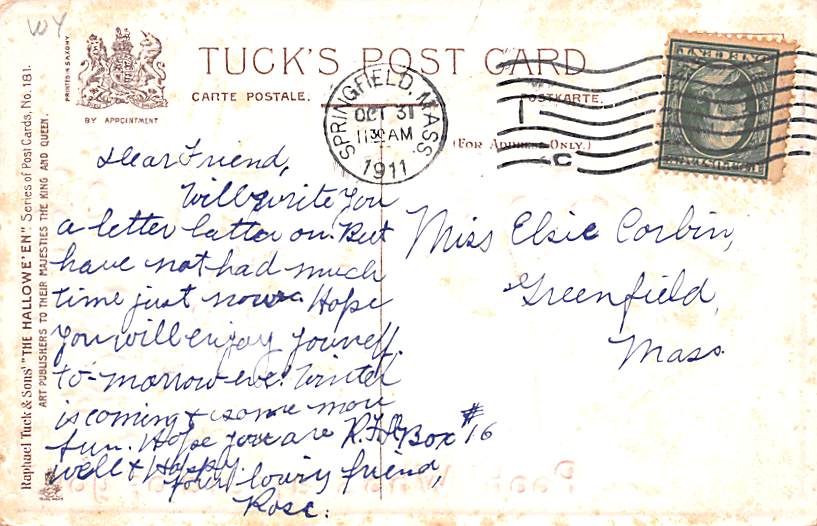 WY
TUCK'S POST CARD
CARTE POSTALE.
POSTKARTE.
(FOR ADDRESS ONLY.)
PRINTED IN SAXONY
BY APPOINTMENT
Raphael Tuck & Sons' "THE HALLOWE'EN" Series of Post Cards, No. 181.
ART PUBLISHERS TO THEIR MAJESTIES THE KING AND QUEEN.
SPRINGFIELD, MASS.
OCT 31
11 30 AM
1911
C
Dear Friend,
Will write you
a letter latter on. But
have not had much
time just now. Hope
you will enjoy yourself
to-morrow eve. Winter
is coming & some more
fun. Hope you are
well & Happy.
Your loving friend,
Rose.
Miss Elsie Corbin,
Greenfield,
Mass.
R.F.D. Box #16